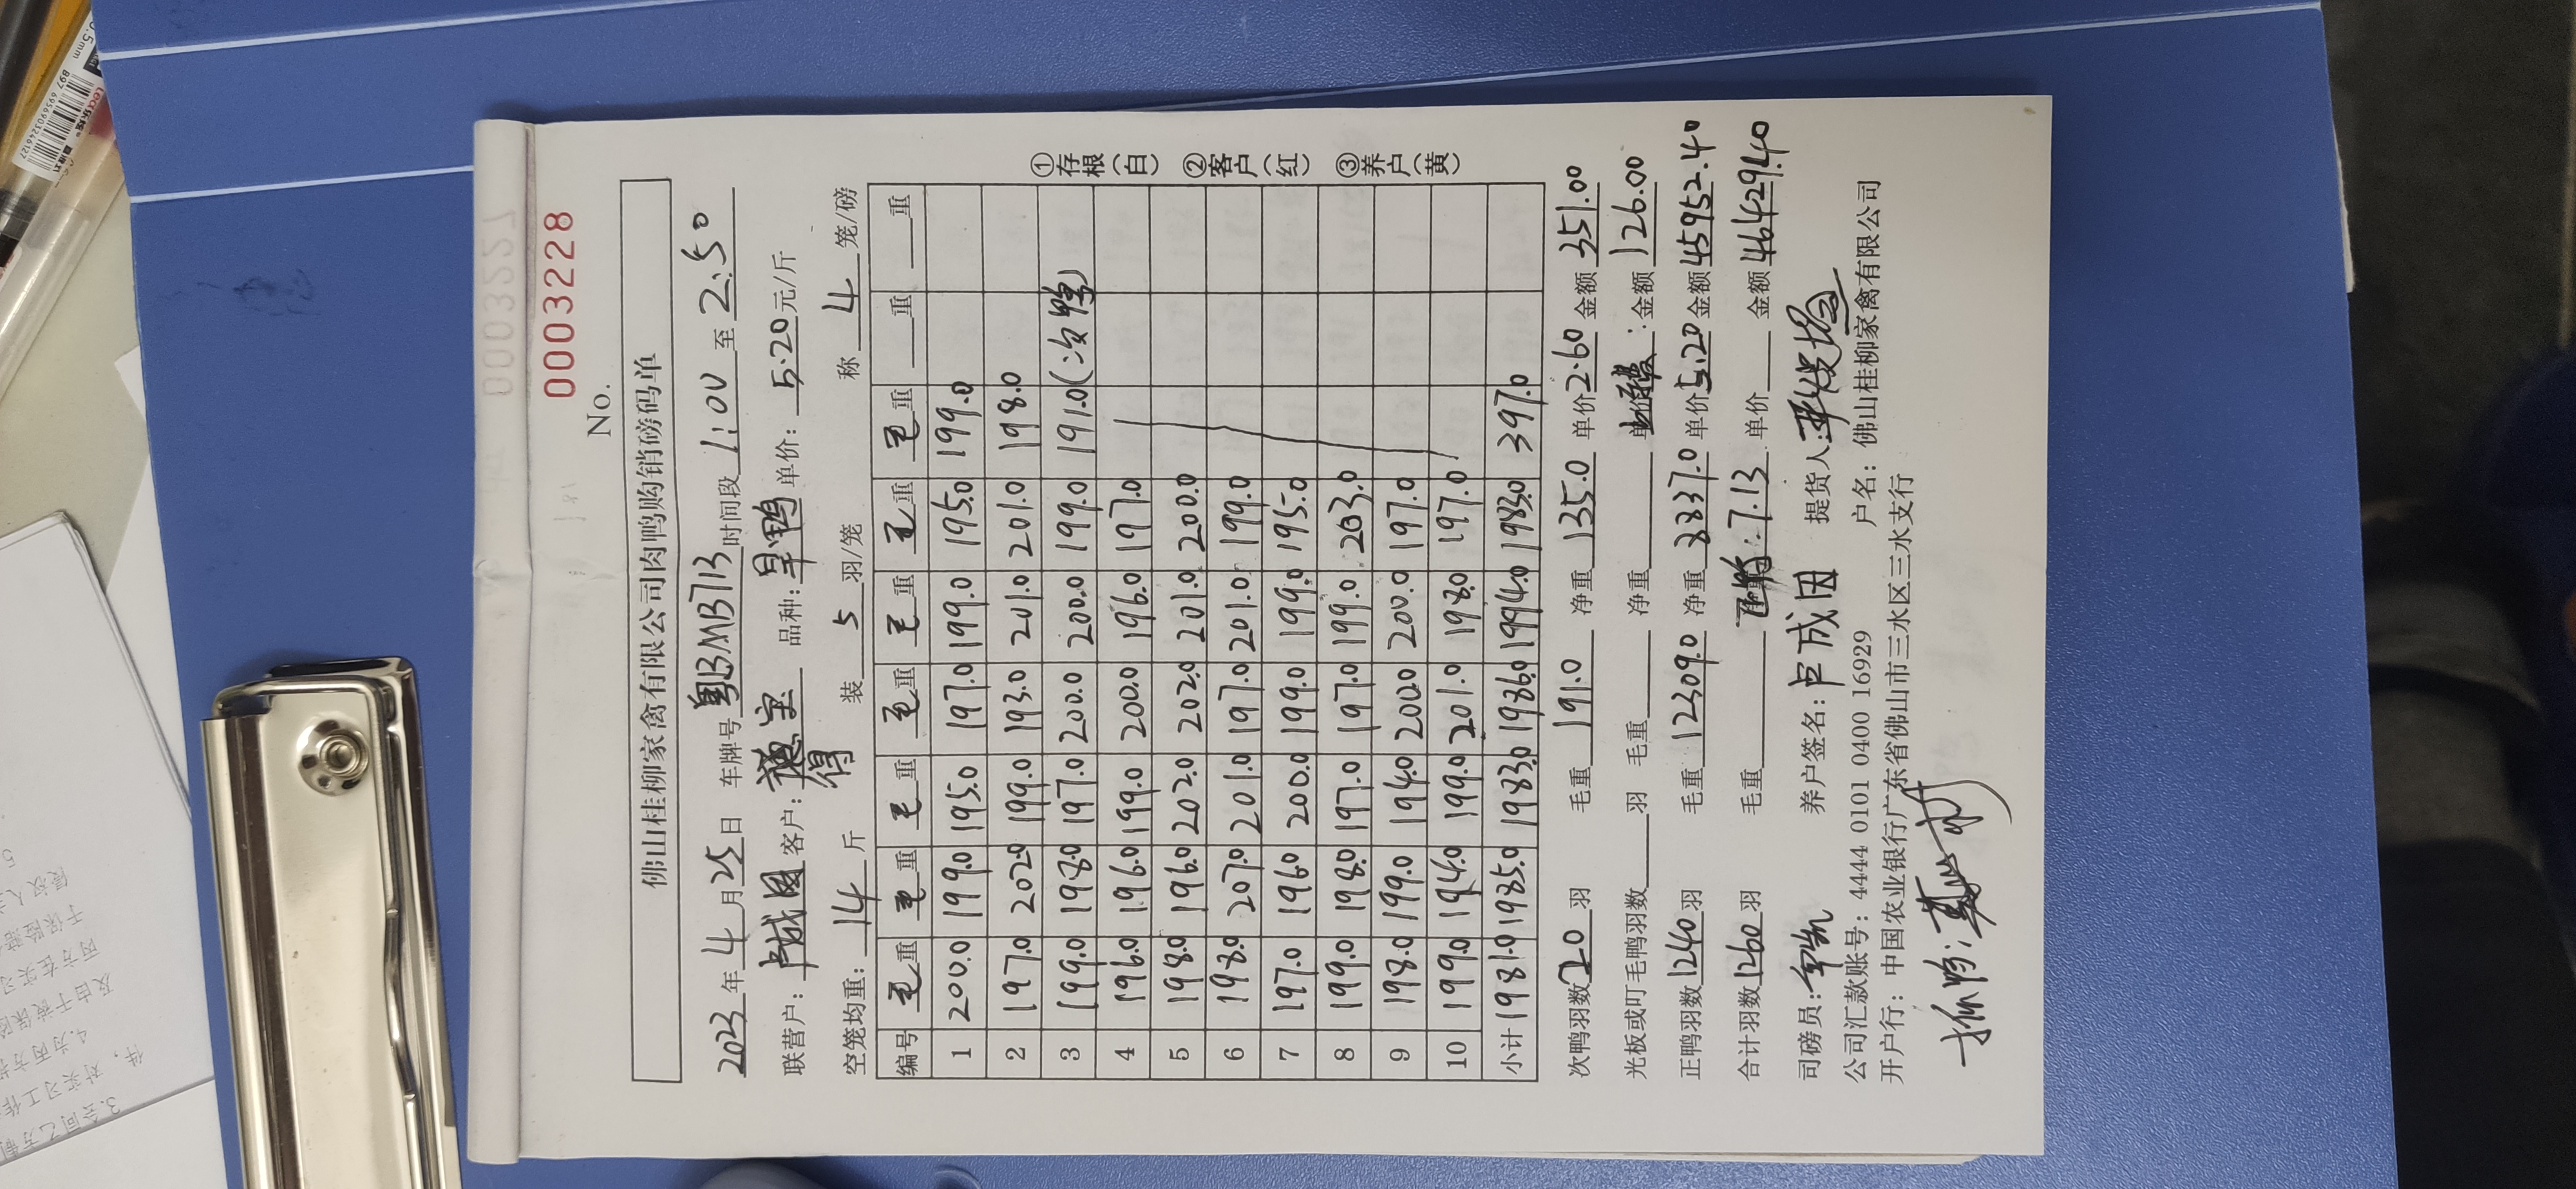 0003228
No.
佛山桂柳家禽有限公司肉鸭购销磅码单
2023年4月25日 车牌号粤BMB713时间段1:00至2:50
联营户：卢成因 客户： 宝 品种：旱鸭 单价：5.20元/斤
得
空笼均重：14斤 装5羽/笼 称4笼/磅
编号 毛重 毛重 毛重 毛重 毛重 毛重 毛重 重 重
1 200.0 199.0 195.0 197.0 199.0 195.0 199.0
2 197.0 202.0 199.0 193.0 201.0 201.0 198.0
3 199.0 198.0 197.0 200.0 200.0 199.0 191.0(次鸭)
4 196.0 196.0 199.0 200.0 196.0 197.0
5 198.0 196.0 202.0 202.0 201.0 200.0
6 198.0 207.0 201.0 197.0 201.0 199.0
7 197.0 196.0 200.0 199.0 199.0 195.0
8 199.0 198.0 197.0 197.0 199.0 203.0
9 198.0 199.0 194.0 200.0 200.0 197.0
10 199.0 194.0 199.0 201.0 198.0 197.0
小计 1981.0 1985.0 1983.0 1986.0 1994.0 1983.0 397.0
①存根(白) ②客户(红) ③养户(黄)
次鸭羽数20羽 毛重191.0 净重135.0 单价2.60 金额351.00
光板或叮毛鸭羽数 羽 毛重 净重 单价 : 金额126.00
正鸭羽数1240羽 毛重12309.0 净重8837.0 单价5.20 金额45952.40
合计羽数1260羽 毛重 均:7.13 单价 金额46429.40
司磅员： 养户签名：卢成因 提货人：
公司汇款账号：4444 0101 0400 16929 户名：佛山桂柳家禽有限公司
开户行：中国农业银行广东省佛山市三水区三水支行
抓鸭：
0.5mm